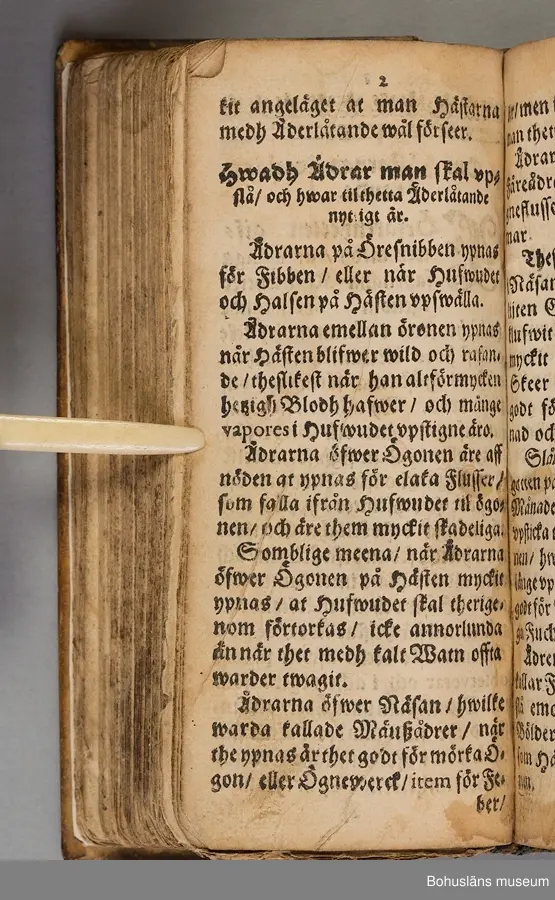 2
kit angeläget at man Hästarna
medh Åderlåtande wäl förseer.
Hwadh Ådrar man skal vp-
slå/ och hwar til thetta Åderlåtande
nyttigt är.
Ådrarna på Öresnibben ypnas
för Fibben / eller när Hufwudet
och Halsen på Hästen vpswälla.
Ådrarna emellan öronen ypnas
når Hästen blifwer wild och rasan-
de / theslikest när han altförmycken
hetzigh Blodh hafwer / och månge
vapores i Hufwudet vpstigne äro.
Ådrarna öfwer Ögonen äre aff
nöden at ypnas för elaka Flusser /
som falla ifrån Hufwudet til ögo-
nen/ och äre them myckit skadeliga.
Somblige meena / når Ådrarna
öfwer Ögonen på Hästen myckit
ypnas / at Hufwudet skal therige-
nom förtorkas / icke annorlunda
än när thet medh kalt Watn offta
warder twagit.
Ådrarna öfwer Näsan / hwilke
warda kallade Mäußådrer / når
the ypnas är thet godt för mörka Ö-
gon/ eller Ögnewerck / item för Fe-
ber/
Bohusläns museum